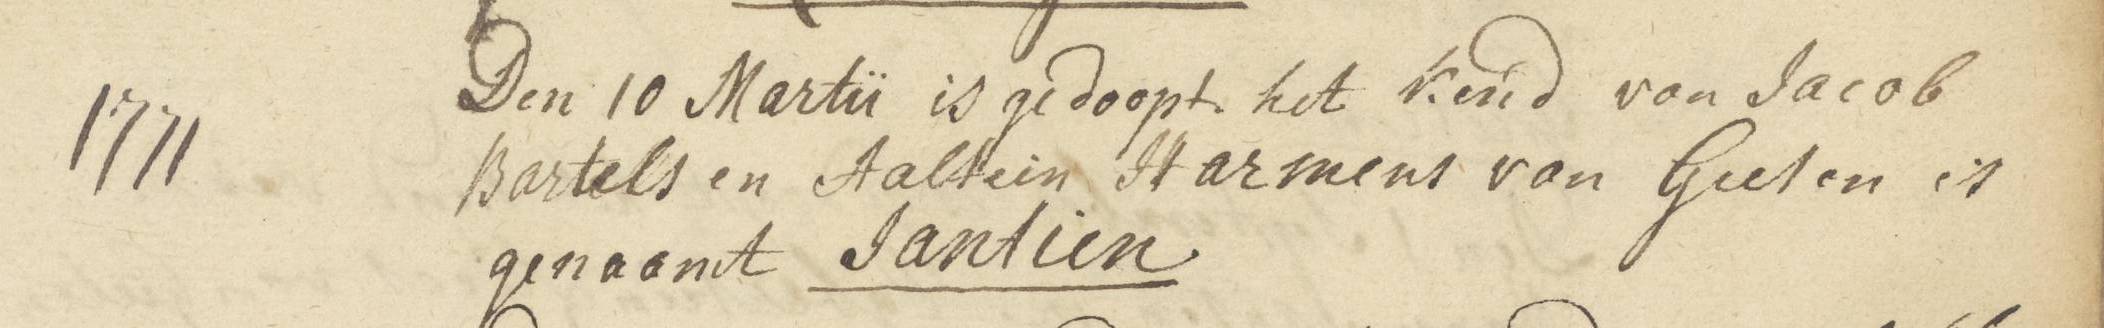 1771
Den 10 Martii is gedoopt het Kend van Jacob
Bartels en Aaltien Harmens van Gieten is
genaamt Jantien